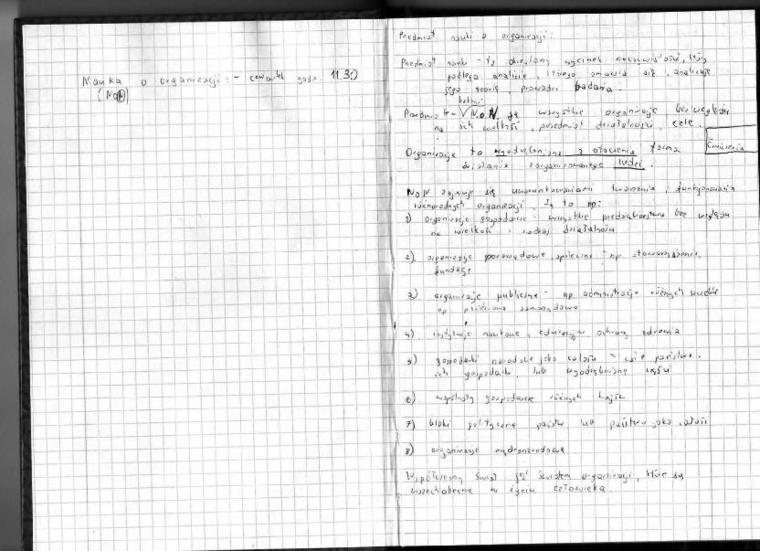 Nauka o organizacji: - czwartek godz. 11.30
(NoO)
Przedmiot nauki o organizacji:
Przedmiot nauki - to określony wycinek rzeczywistości, który
podlega analizie, którego omawia się, analizuje
jego teorię, prowadzi badania.
badań
Przedmiotem N.o.O. są wszystkie organizacje bez względu
na ich wielkość, przedmiot działalności, cele.
Ćwiczenia
Organizacje to wyodrębniona z otoczenia forma
działania zorganizowanego ludzi.
NoO zajmuje się uwarunkowaniami tworzenia i funkcjonowania
różnorodnych organizacji. Są to np:
1) organizacje gospodarcze - wszystkie przedsiębiorstwa bez względu
na wielkość i rodzaj działalności
2) organizacje pozarządowe, społeczne - np. stowarzyszenia,
fundacje
3) organizacje publiczne - np. administracja różnych szczebli
np. placówki samorządowe
4) instytucje naukowe, edukacyjne ochrony zdrowia
5) gospodarki narodowe jako całość - całe państwa,
ich gospodarki lub wyodrębnione części
6) wspólnoty gospodarcze różnych krajów
7) bloki polityczne państw lub państwa jako całość
8) organizacje międzynarodowe
Współczesny świat jest światem organizacji, które są
wszechobecne w życiu człowieka.